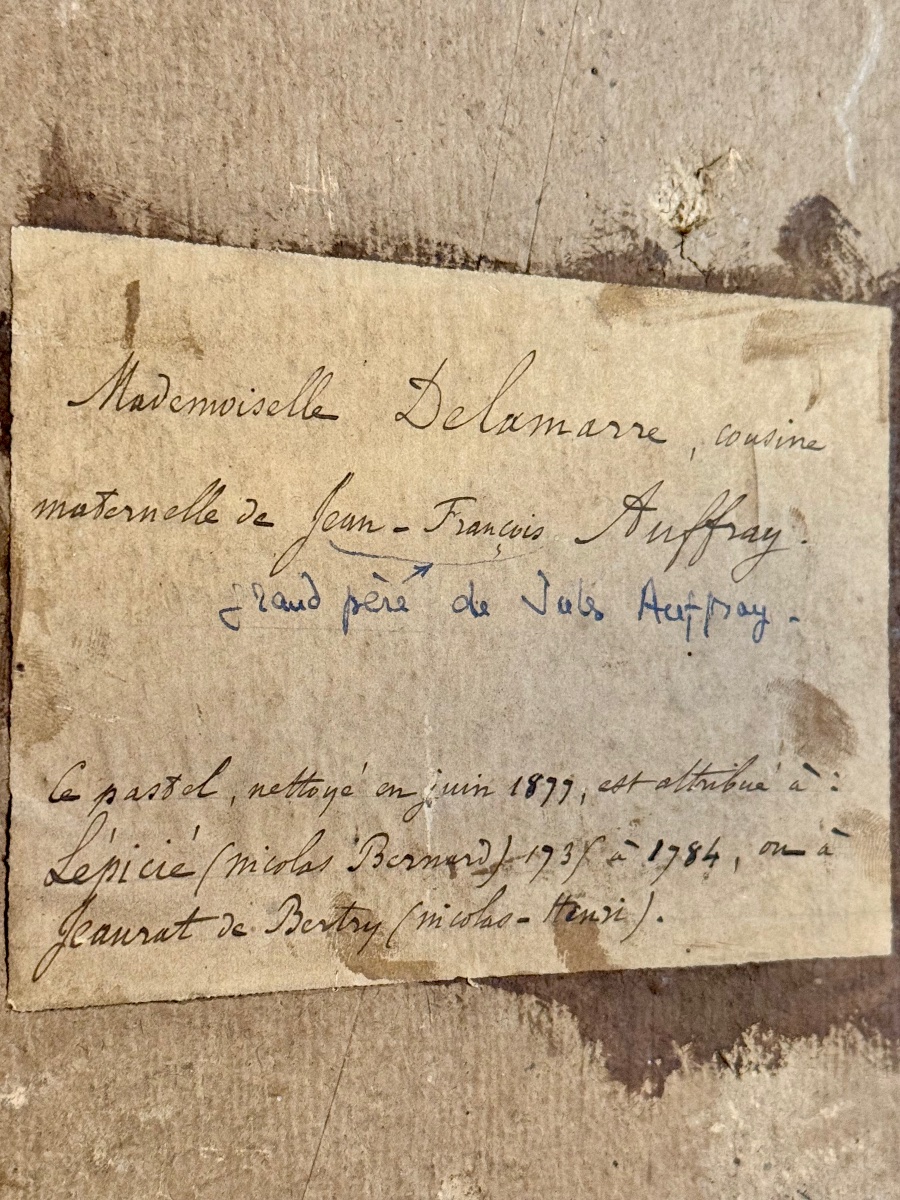 Mademoiselle Delamarre, cousine
maternelle de Jean-François Auffray.
grand père de Jules Auffray.
Ce pastel, nettoyé en juin 1877, est attribué à :
Lépicié (nicolas Bernard) 1735 à 1784, ou à
Jeaurat de Bertry (nicolas-Henri).